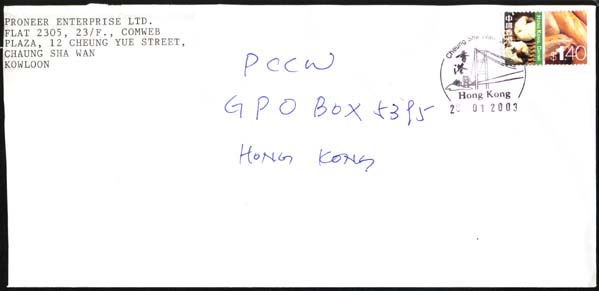 PRONEER ENTERPRISE LTD.
FLAT 2305, 23/F., COMWEB
PLAZA, 12 CHEUNG YUE STREET,
CHAUNG SHA WAN
KOWLOON
PCCW
GPO BOX 5395
HONG KONG
Cheung Sha Wan
香港
Hong Kong
01 2003
中國香港
HONG KONG, CHINA
$1.40